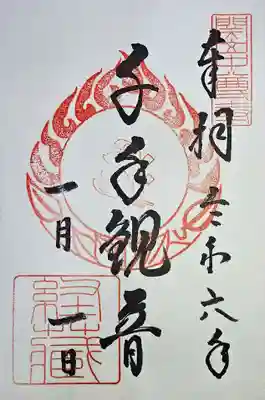 奉拝 令和六年
千手観音
一月一日
經藏